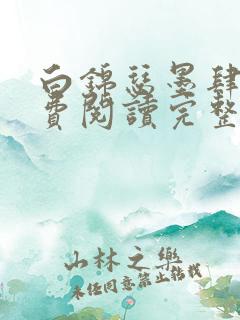 白錦瑟墨肆
費閱讀完整
山林之樂
未经同意禁止转载